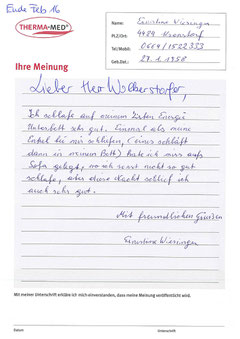 Ende Feb 16
THERMA-MED®
Name: Christine Wiesinger
PLZ/Ort: 4484 Kronstorf
Tel/Mobil: 0664/1522333
Geb.Dat.: 27.1.1958
Ihre Meinung
Lieber Herr Wolkerstorfer,
Ich schlafe auf meinem Energie
Unterbett sehr gut. Einmal als meine
Enkel bei mir schliefen, (eines schläft
dann in meinem Bett) habe ich mich aufs
Sofa gelegt, wo ich sonst nicht so gut
schlafe, aber diese Nacht schlief ich
auch sehr gut.
Mit freundlichen Grüssen
Christine Wiesinger
Mit meiner Unterschrift erkläre ich mich einverstanden, dass meine Meinung veröffentlicht wird.
Datum Unterschrift